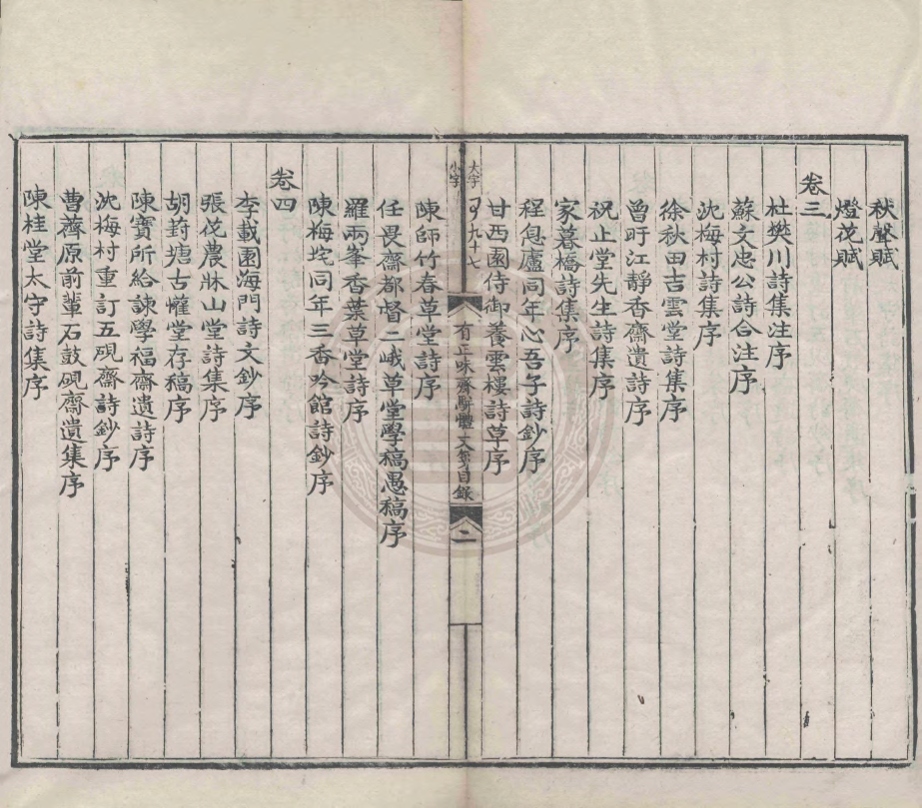 秋聲賦
燈花賦
卷三
杜樊川詩集注序
蘇文忠公詩合注序
沈梅村詩集序
徐秋田吉雲堂詩集序
曾盱江靜香齋遺詩序
祝止堂先生詩集序
家暮橋詩集序
程息廬同年心吾子詩鈔序
甘西園侍御養雲樓詩草序
大字
小字
九十七
有正味齋駢體文箋目錄
二
陳師竹春草堂詩序
任畏齋都督二峨草堂學稿愚稿序
羅兩峯香葉草堂詩序
陳梅垞同年三香吟館詩鈔序
卷四
李載園海門詩文鈔序
張花農牀山堂詩集序
胡葑塘古懽堂存稿序
陳寶所給諫學福齋遺詩序
沈梅村重訂五硯齋詩鈔序
曹薺原前輩石鼓硯齋遺集序
陳桂堂太守詩集序